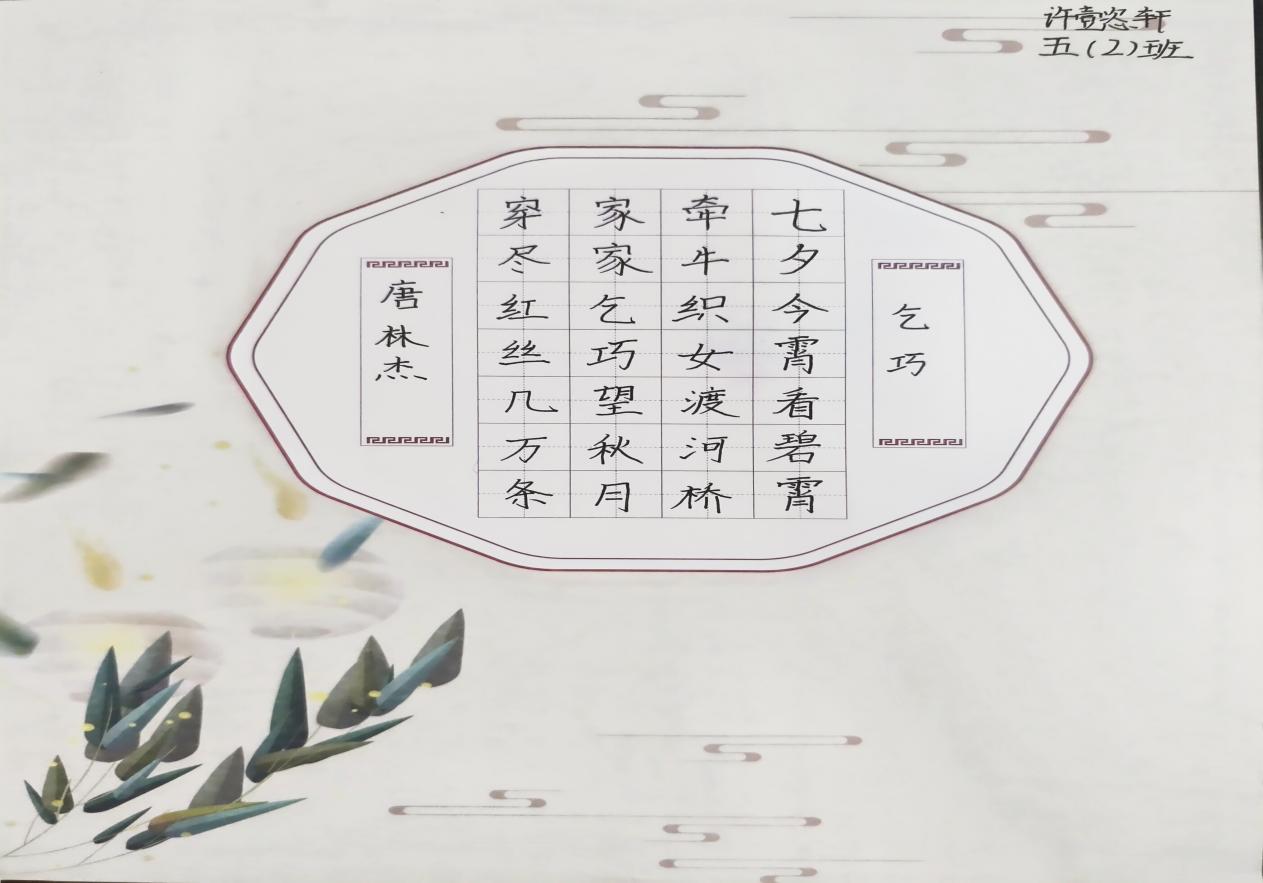 许壹恣轩
五(2)班
乞巧
七夕今霄看碧霄
牵牛织女渡河桥
家家乞巧望秋月
穿尽红丝几万条
唐林杰